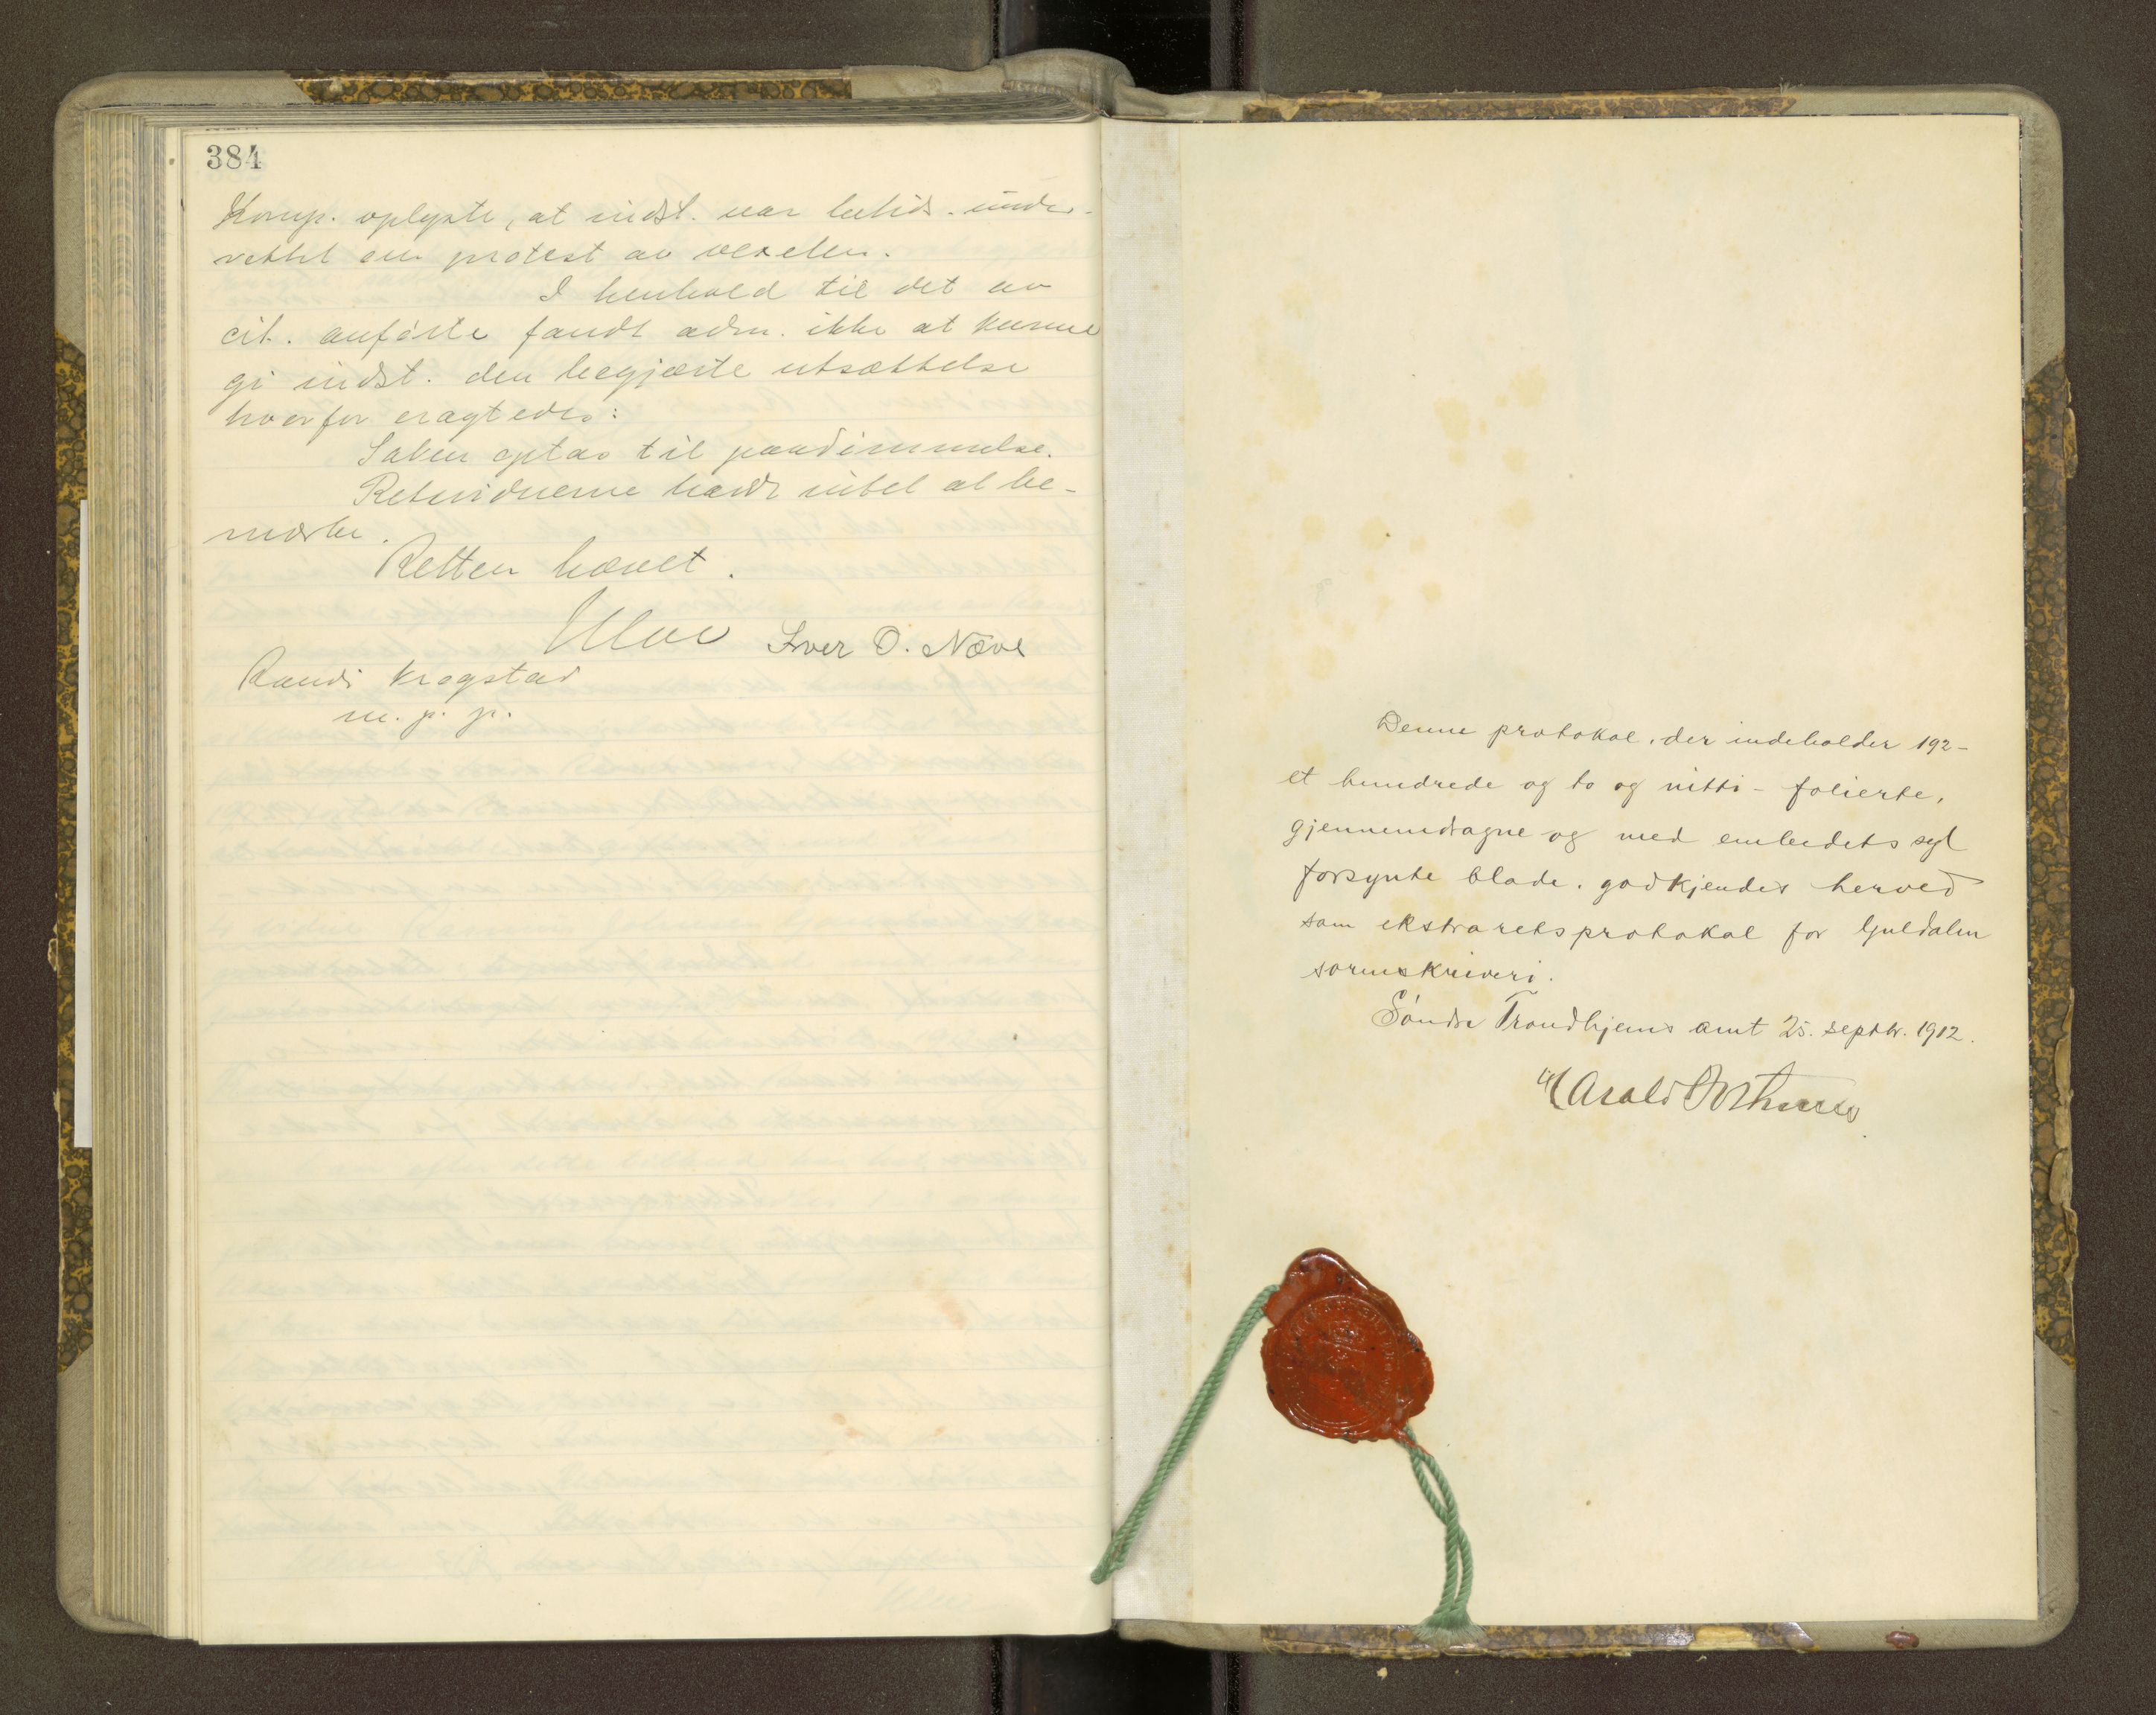 384
Komp. oplyste, at indst. var betids under-
rettet om protest av vexelen.
I henhold til det av
cit. anførte fandt adm. ikke at kunne
gi indst. den begjærte utsættelse
hvorfor eragtedes:
Saken optas til paadømmelse.
Retsvidnerne hadde intet at be-
mærke.
Retten hævet.
Iver O. Næve
Randi Krogstad
m. p. p.
Denne protokol, der indeholder 192-
et hundrede og to og nitti - folierte,
gjennemdragne og med embedets segl
forsynte blade, godkjendes herved
som ekstraretsprotokol for Guldalen
sorenskriveri.
Søndre Trondhjems amt 25. septbr. 1912.
Harald